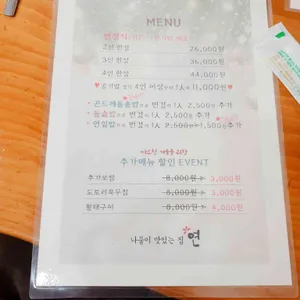 MENU
2인 한상 26,000원
3인 한상 36,000원
4인 한상 44,000원
4인 이상부터 1人 11,000원
곤드레돌솥밥 변경시 1人 2,500원 추가
돌솥밥으로 변경시 1人 2,500원 추가
연잎밥으로 변경시 1人 2,500원 1,500원추가
추가메뉴 할인 EVENT
추가보쌈 8,000원 3,000원
도토리묵무침 8,000원 3,000원
황태구이 8,000원 4,000원
나물이 맛있는 집 연